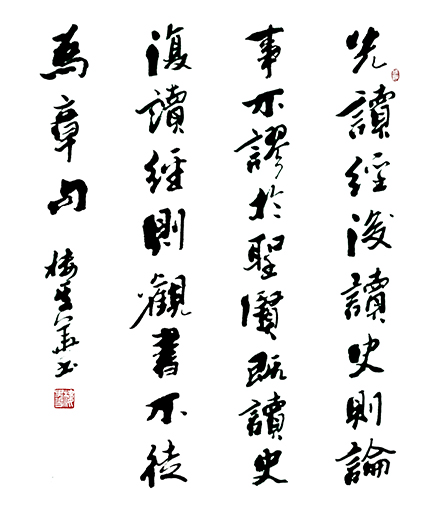 先讀經後讀史則論
事不謬於聖賢既讀史
復讀經則觀書不徒
為章句